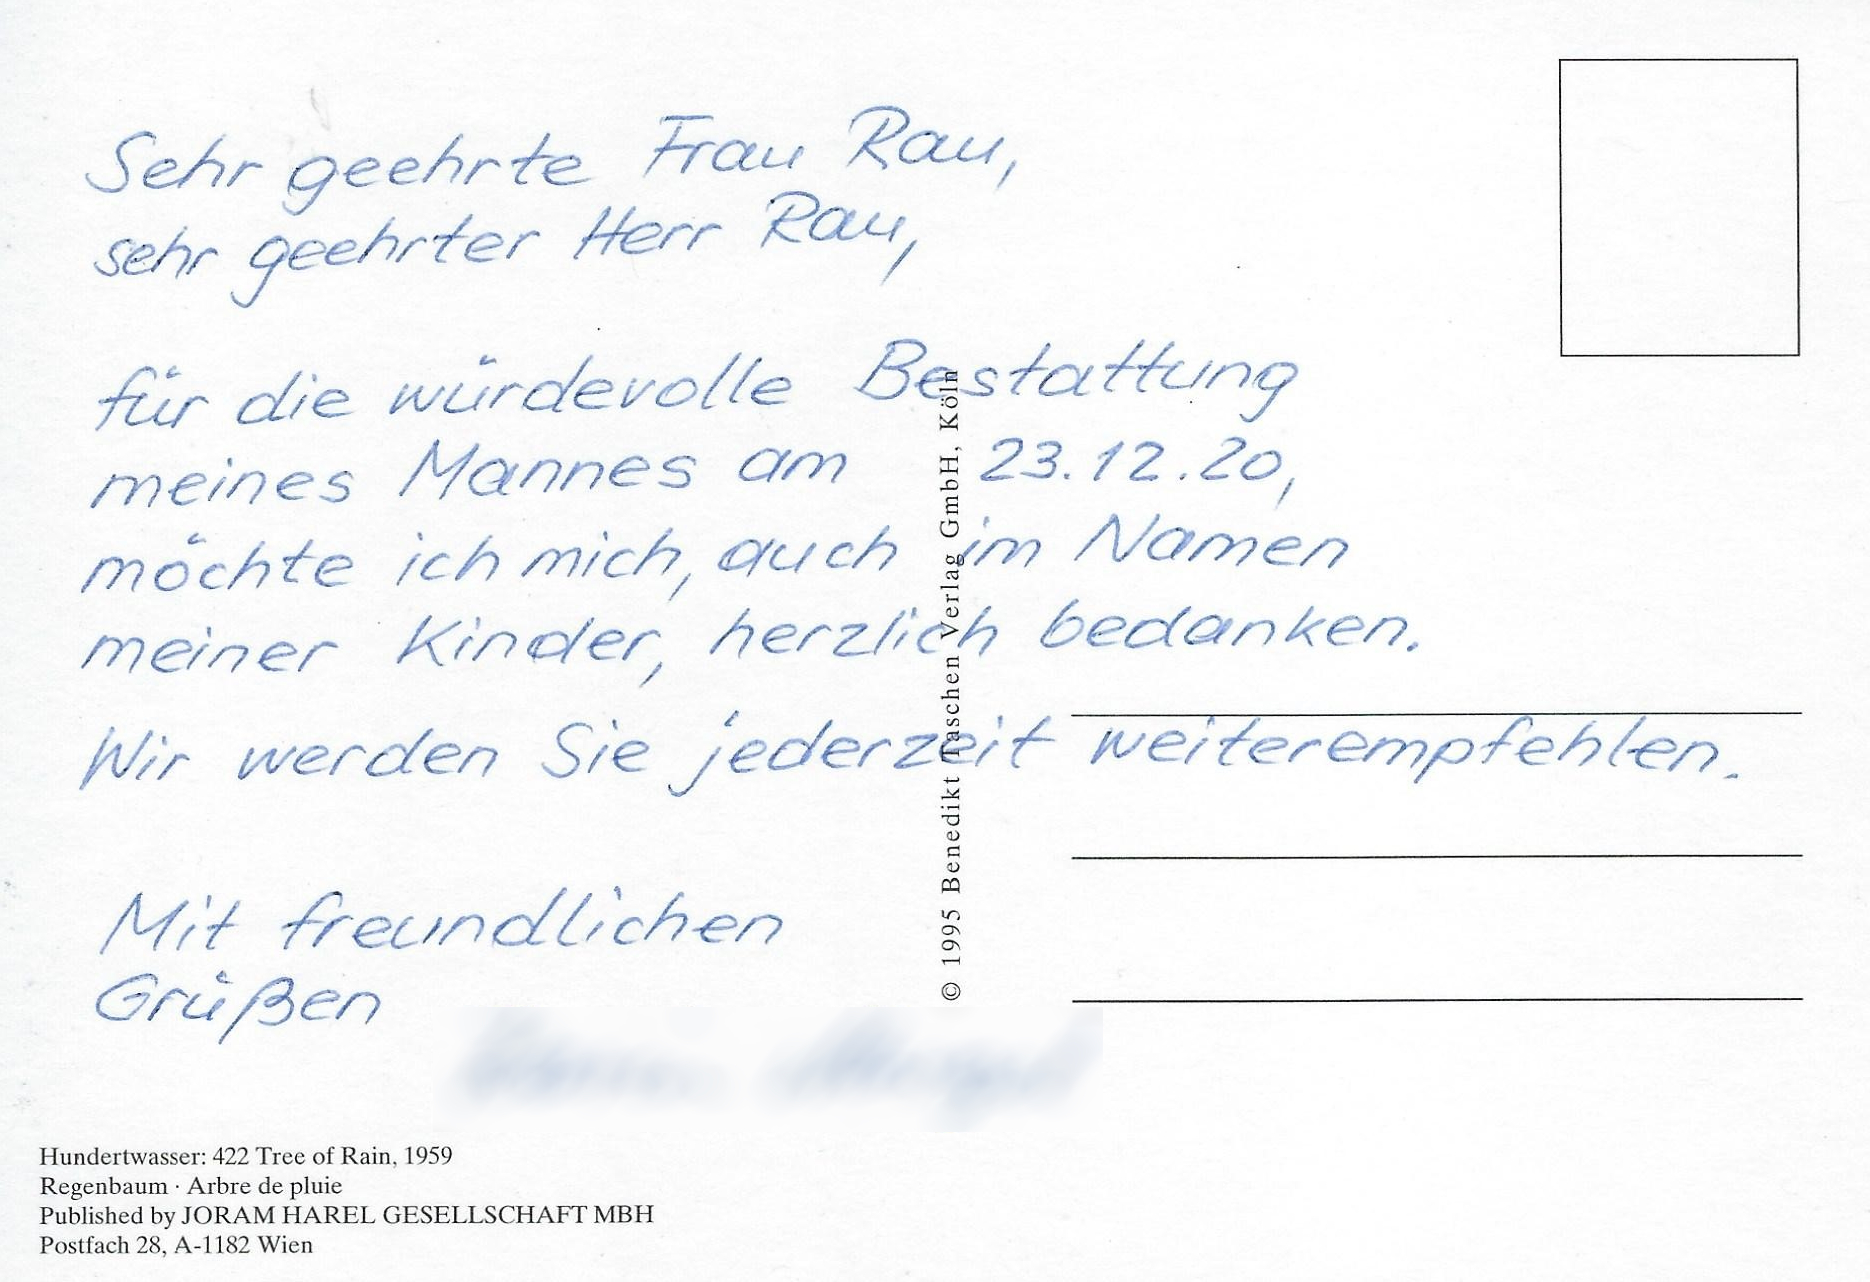 Sehr geehrte Frau Rau,
sehr geehrter Herr Rau,
für die würdevolle Bestattung
meines Mannes am 23.12.20,
möchte ich mich, auch im Namen
meiner Kinder, herzlich bedanken.
Wir werden Sie jederzeit weiterempfehlen.
Mit freundlichen
Grüßen
© 1995 Benedikt Taschen Verlag GmbH, Köln
Hundertwasser: 422 Tree of Rain, 1959
Regenbaum · Arbre de pluie
Published by JORAM HAREL GESELLSCHAFT MBH
Postfach 28, A-1182 Wien